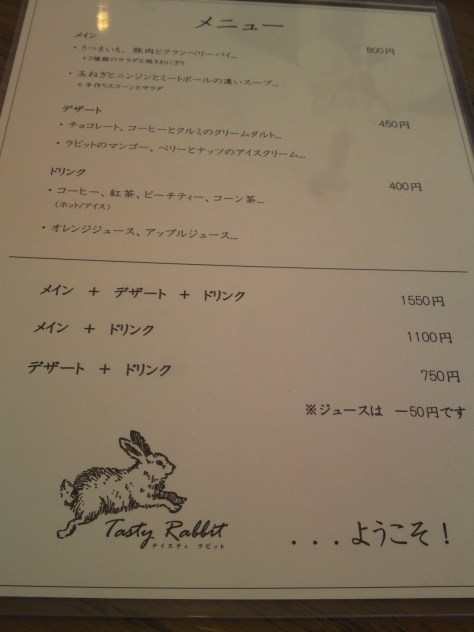 メニュー
メイン
・さつまいも、豚肉とクランベリーパイ... 800円
+2種類のサラダと焼きおにぎり
・玉ねぎとニンジンとミートボールの濃いスープ...
+ 手作りスコーンとサラダ
デザート
450円
・チョコレート、コーヒーとクルミのクリームタルト...
・ラビットのマンゴー、ベリーとナッツのアイスクリーム...
ドリンク
400円
・コーヒー、紅茶、ピーチティー、コーン茶...
(ホット/アイス)
・オレンジジュース、アップルジュース...
メイン + デザート + ドリンク 1550円
メイン + ドリンク 1100円
デザート + ドリンク 750円
※ジュースは －50円です
Tasty Rabbit
テイスティ ラビット
...ようこそ！